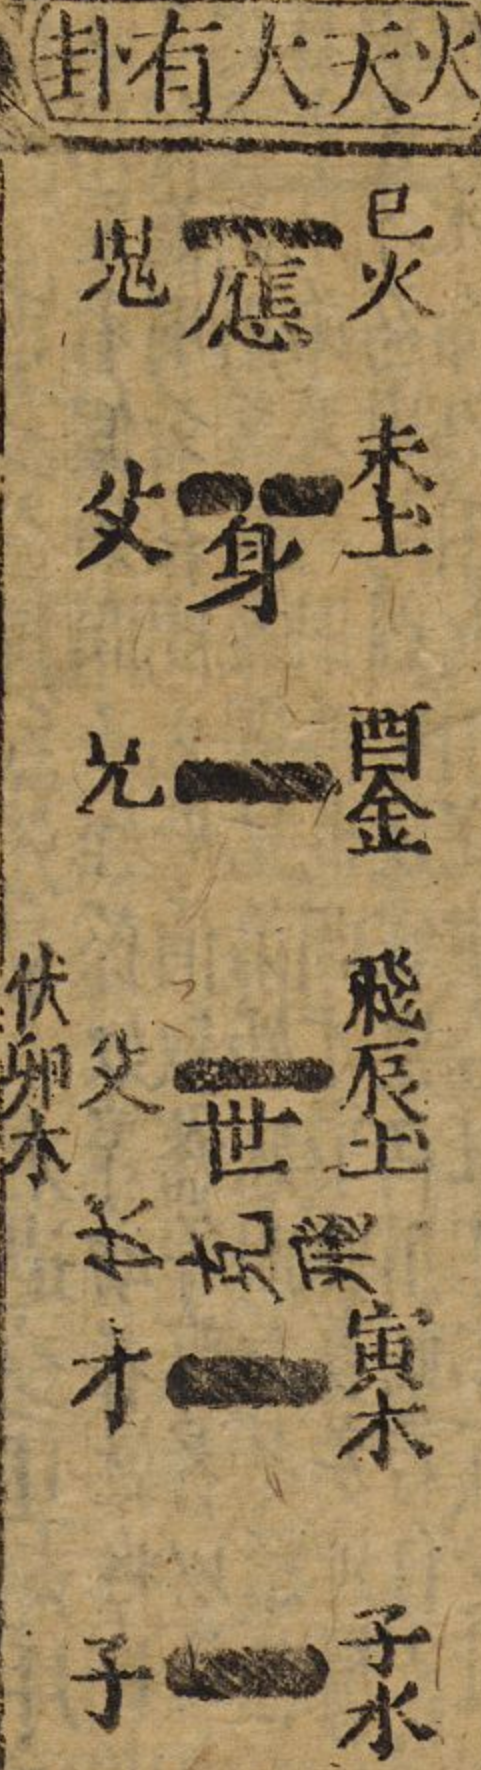 火天大有卦
巳火 應 鬼
未土 身 父
酉金 兄
飛辰土 世 父 伏卯木
寅木 才
子水 子